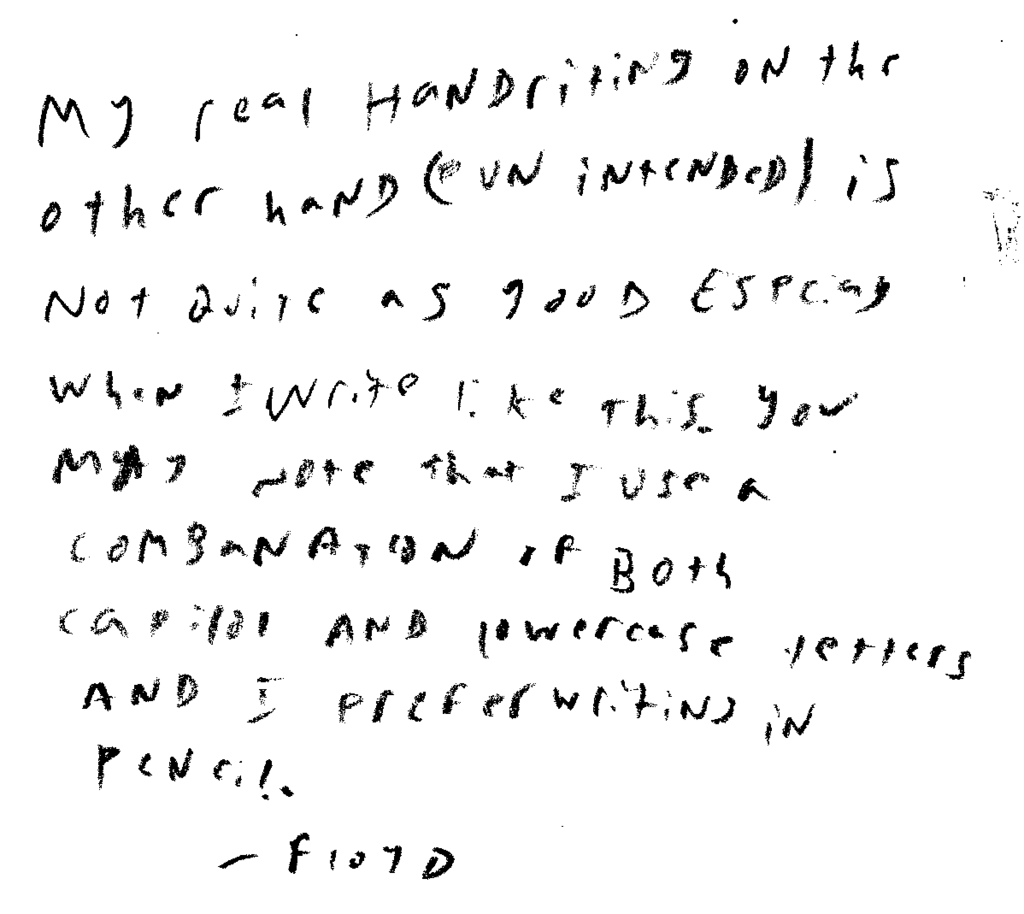 My real HaNDriting oN the
other haND (PUN iNteNDeD) is
Not Quite as gooD ESPeciay
when I Write like This. you
MAy note that I use a
COMBaNATION of Both
capital AND lowercase letters
AND I prefer writiNg iN
PeNcil.
- Floyd